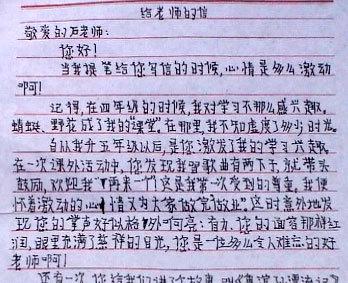 给老师的信
敬爱的石老师：
您好！
当我提笔给您写信的时候，心情是多么激动
啊！
记得，在四年级的时候，我对学习不那么感兴趣。
蜻蜓、野花成了我的“课堂”。在那里，我不知虚度了多少时光。
自从我升五年级以后，是您激发了我的学习兴趣。
在一次课外活动中，您发现我唱歌曲有两下子，就带头
鼓励，欢迎我“再来一个”这是我第一次受到的尊重，我便
怀着激动的心情又为大家 这时意外地发
现您的掌声好似格外响亮；有力，您的面容那样红
润，眼里充满了慈祥的目光，您是一位多么令人难忘的好
老师啊！
还有一次，您给我们讲了故事